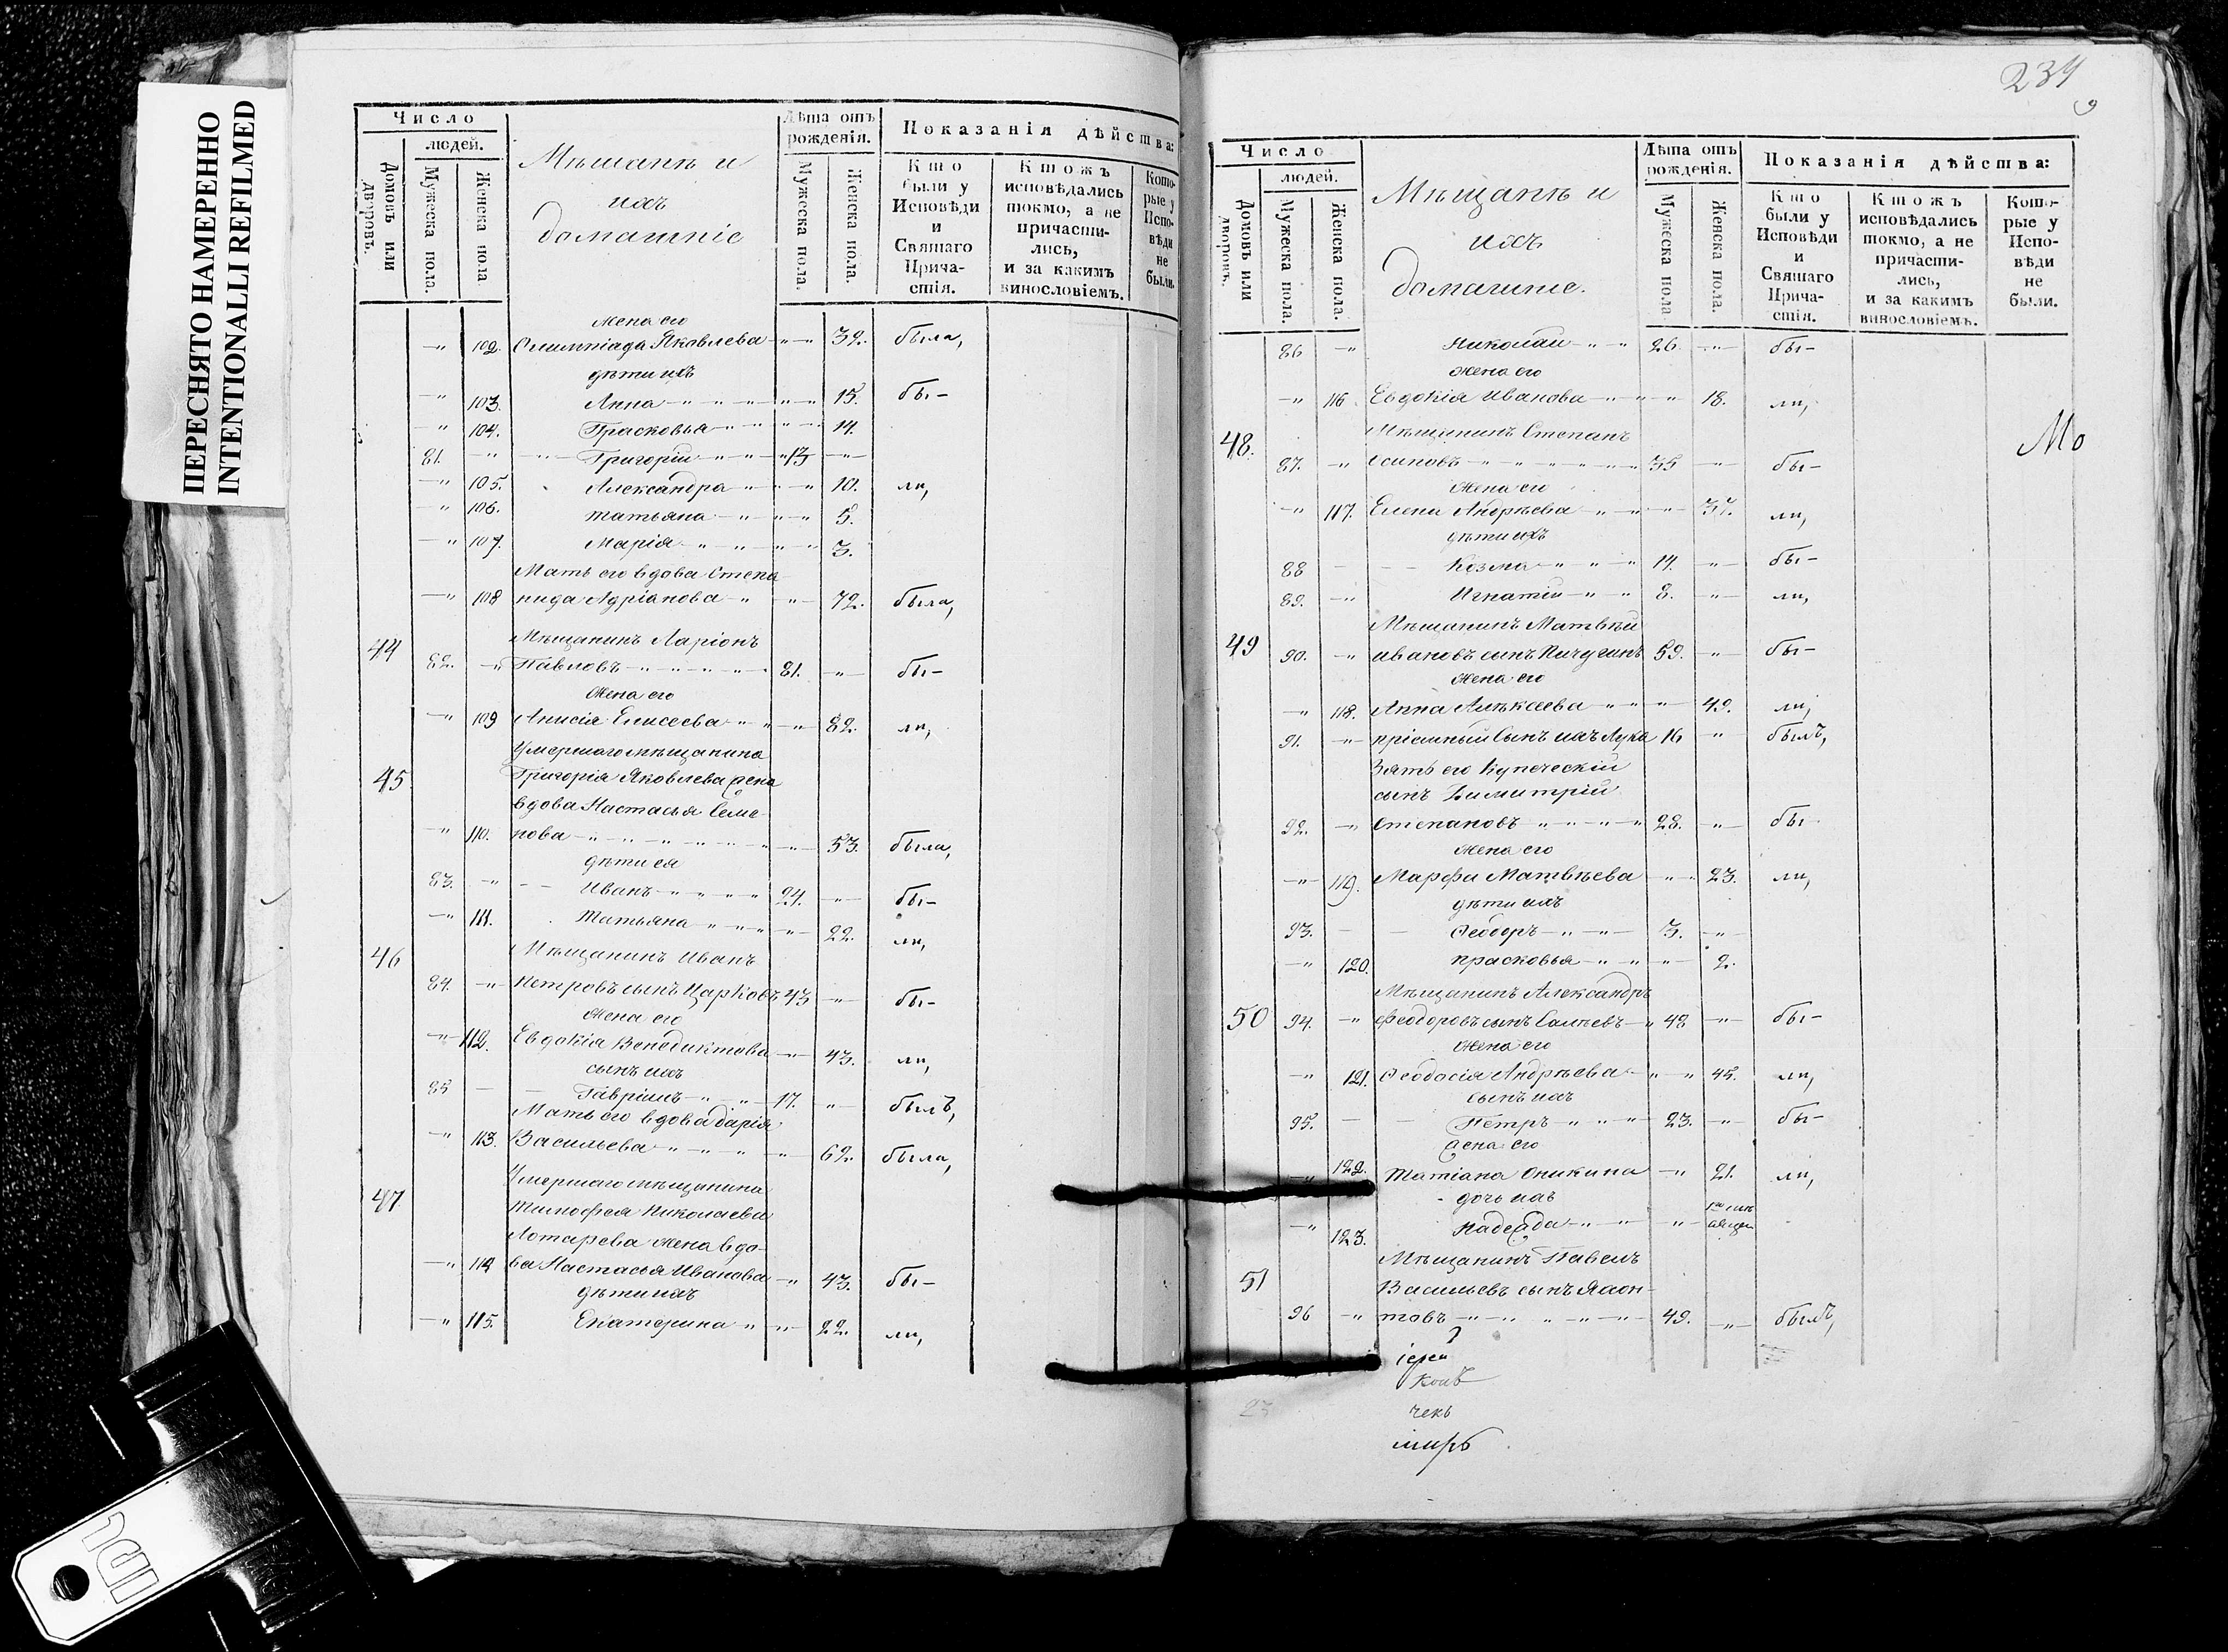 ПЕРЕСНЯТО НАМЕРЕННО
INTENTIONALLI REFILMED
Число
людей.
Домовъ или дворовъ.
Мужеска пола.
Женска пола
Мѣщанѣ и
ихъ
домашніе
Лѣта отъ рожденія.
Мужеска пола.
Женска пола.
Показанія дѣйства:
Кто были у Исповѣди и Святаго Прича-стія.
Ктожъ исповѣдались токмо, а не причасти-лись, и за какимъ винословіемъ.
Кото-рые у Испо-вѣди не были.
Жена его
-"- 102. Олимпіада Яковлева -"- 32. была,
дѣти ихъ
-"- 103. Анна -"- 15. бы-
-"- 104. Прасковья -"- 14.
81. -"- Григорій -"- 13 -"-
-"- 105. Александра -"- 10. ли,
-"- 106. Татьяна -"- 5.
-"- 107. Марія -"- 3.
Мать его вдова Степа
-"- 108 нида Адріанова -"- 72. была,
44 Мѣщанинъ Ларіонъ
82. -"- Павловъ -"- 81. -"- бы-
Жена его
-"- 109 Анисія Елисеева -"- 82. ли,
Умершаго мѣщанина
45 Григорія Яковлева жена
вдова Настасья Семе
-"- 110. нова -"- 53. была,
дѣти ея
83. -"- Иванъ -"- 24. -"- бы-
-"- 111. Татьяна -"- 22. ли,
46 Мѣщанинъ Иванъ
84. -"- Петровъ сынъ Царковъ 43 -"- бы-
Жена его
-"- 112. Евдокія Венедиктова -"- 43. ли,
сынъ ихъ
85 - Гавріилъ -"- 17. -"- былъ,
Мать его вдова Дарія
-"- 113. Васильева -"- 62. была,
Умершаго мѣщанина
47 Тимофея Николаева
Лотарева жена вдо-
-"- 114 ва Настасья Иванова -"- 43. бы-
дѣти ихъ
-"- 115. Екатерина -"- 22. ли,
234
9
Число
людей.
Домовъ или дворовъ.
Мужеска пола.
Женска пола.
Мѣщанѣ и
ихъ
домашніе.
Лѣта отъ рожденія.
Мужеска пола
Женска пола.
Показанія дѣйства:
Кто были у Исповѣди и Святаго Прича-стія.
Ктожъ исповѣдались токмо, а не причасти-лись, и за какимъ винословіемъ.
Кото-рые у Испо-вѣди не были.
86 -"- Николай -"- 26. -"- бы-
жена его
-"- 116. Евдокія Иванова -"- 18. ли,
48. Мѣщанинъ Степанъ
Мо
87. -"- Осиповъ -"- 35 -"- бы-
Жена его
-"- 117. Елена Андрѣева -"- 37. ли,
дѣти ихъ
88 - Козма -"- 14. -"- бы-
89. -"- Игнатій -"- 8. -"- ли,
49 Мѣщанинъ Матвѣй
90. -"- Ивановъ сынъ Пичугинъ 59. -"- бы-
Жена его
-"- 118. Анна Алѣксеева -"- 49. ли,
91. -"- пріемный сынъ ихъ Лука 16 -"- былъ,
Зять его Купеческій
сынъ Димитрій
92. -"- Степановъ -"- 28. -"- бы-
Жена его
-"- 119. Марфа Матвѣева -"- 23. ли,
дѣти ихъ
93. - Феодоръ -"- 3. -"-
-"- 120. Прасковья -"- 2.
50 Мѣщанинъ Александръ
94. -"- Феодоровъ сынъ -"- 48 -"- бы-
Жена его
-"- 121. Феодосія Андрѣева -"- 45. ли,
сынъ ихъ
95. - Петръ -"- 23. -"- бы-
жена его
-"- 122. Татіана Оникина -"- 21. ли,
дочь ихъ
-"- 123. Надежда -"-
51 Мѣщанинъ Павелъ
Васильевъ сынъ
96 -"- товъ -"- 49. -"- былъ,
іерей
чекъ
23